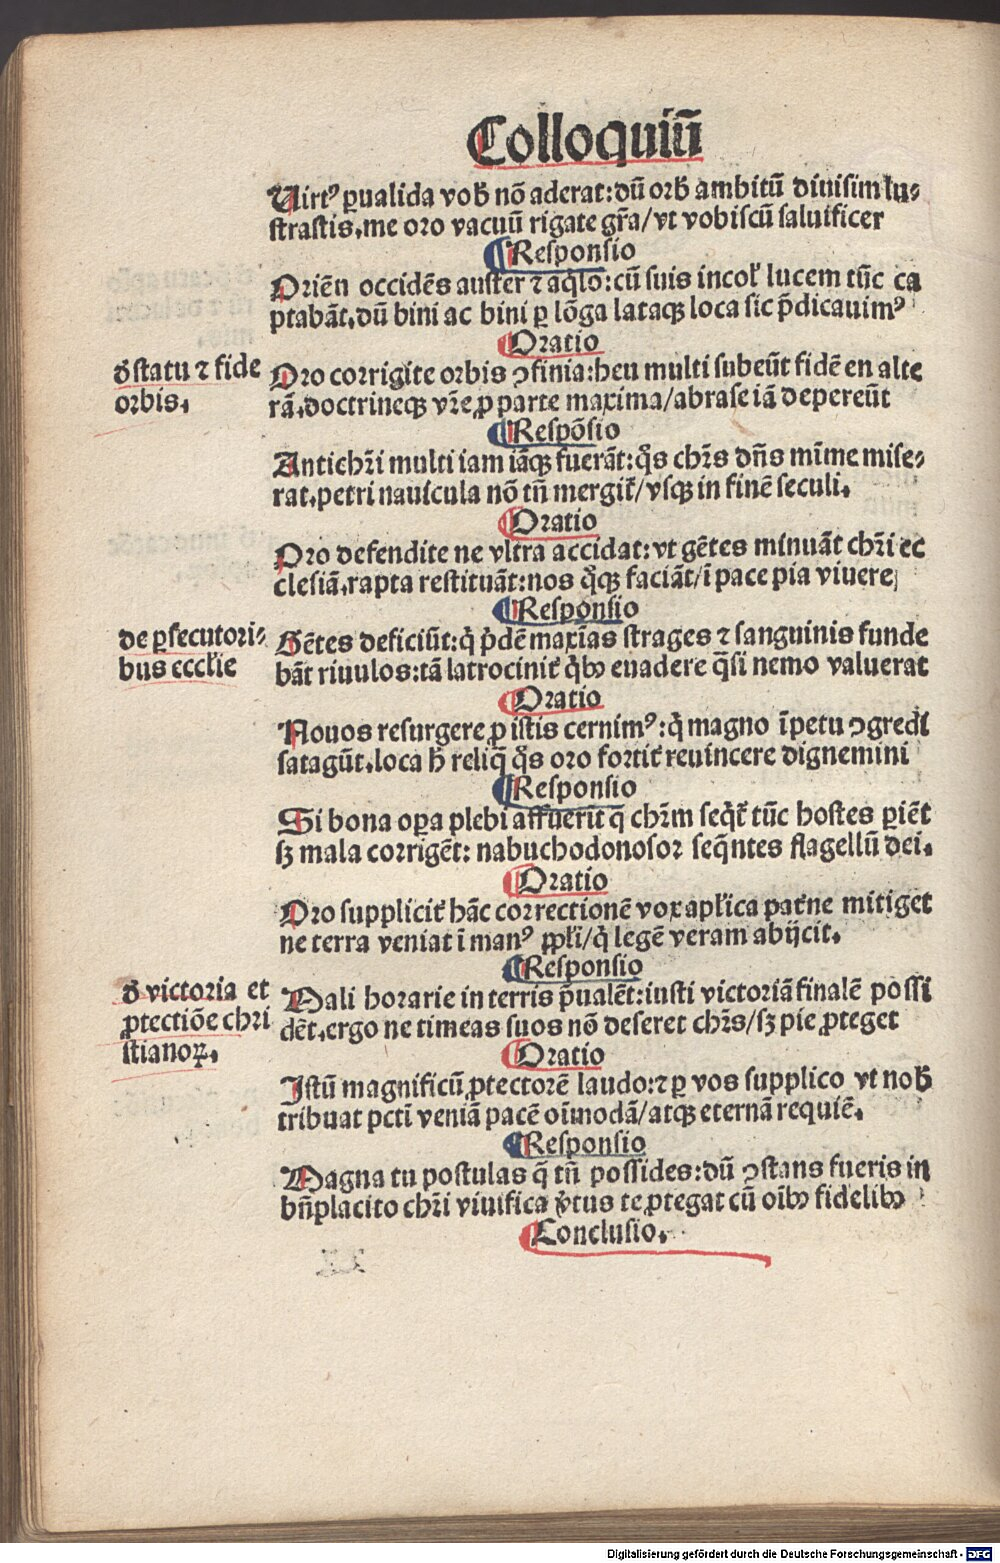 Colloquiũ
Uirtꝰ p̲ualida vob̄ nõ aderat: dũ orb̄ ambitũ diuisim lu⸗
straſtis, me oro vacuũ rigate gr̃a/ vt vobiſcũ ſaluificer
Reſponſio
Oriẽn occidẽs auſter ⁊ aq̃lo: cũ ſuis incoƚ lucem tũc ca
ptabãt, dũ bini ac bini ꝑ lõga lataqꝫ loca ſic p̃dicauimꝰ
Oratio
ð ſtatu ⁊ fide
orbis.
Oro corrigite orbis ꝯfinia: heu multi ſubeũt fidẽ en alte
rã, doctrineqꝫ vr̃e ꝓ parte maxima/ abraſe iã depereũt
Reſpõſio
Antichr̃i multi iam iãqꝫ fuerãt: q̃s chr̃s dñs mĩme miſe⸗
rat, petri nauicula nõ tñ mergit̃/ vſqꝫ in finẽ ſeculi.
Oratio
Oro defendite ne vltra accidat: vt gẽtes minuãt chr̃i ec
cleſiã, rapta reſtituãt: nos q̊qꝫ faciãt/ ĩ pace pia viuere
Reſponſio
de ꝑſecutori⸗
bus eccl̃ie
Gẽtes deficiũt: q̇ p̃dẽ maxĩas ſtrages ⁊ ſanguinis funde
bãt riuulos: tã latrocinĩt q̇bꝰ euadere q̃ſi nemo valuerat
Oratio
Nouos reſurgere ꝓ iſtis cernimꝰ: q̇ magno ĩpetu ꝯgredi
ſatagũt, loca h̄ reliq̃ q̃s oro fortit̃ reuincere dignemini
Reſponſio
Si bona oꝑa plebi affuerĩt q̃ chr̃m ſeq̇t̃ tũc hoſtes ꝑiẽt
ſꝫ mala corrigẽt: nabuchodonoſor ſeq̃ntes flagellũ dei.
Oratio
Oro ſupplicit̃ hãc correctionẽ vox apl̃ica pat̃ne mitiget
ne terra veniat ĩ manꝰ ꝓpl̃i/ q̇ legẽ veram abijcit.
Reſponſio
ð victoria et
ꝓtectiõe chri
ſtianoꝝ.
Mali horarie in terris p̃ualẽt: iuſti victoriã finalẽ poſſi
dẽt, ergo ne timeas ſuos nõ deſeret chr̃s/ ſꝫ pie ꝓteget
Oratio
Iſtũ magnificũ ꝓtectorẽ laudo: ⁊ ꝑ vos ſupplico vt nob̄
tribuat pctĩ veniã pacẽ oĩmodã/ atqꝫ eternã requiẽ.
Reſponſio
Magna tu poſtulas q̃ tñ poſſides: dũ ꝯſtans fueris in
bñplacito chr̃i viuifica v̓tus te ꝓtegat cũ oĩbꝰ fidelibꝰ
Concluſio.
Digitalisierung gefördert durch die Deutsche Forschungsgemeinschaft - DFG